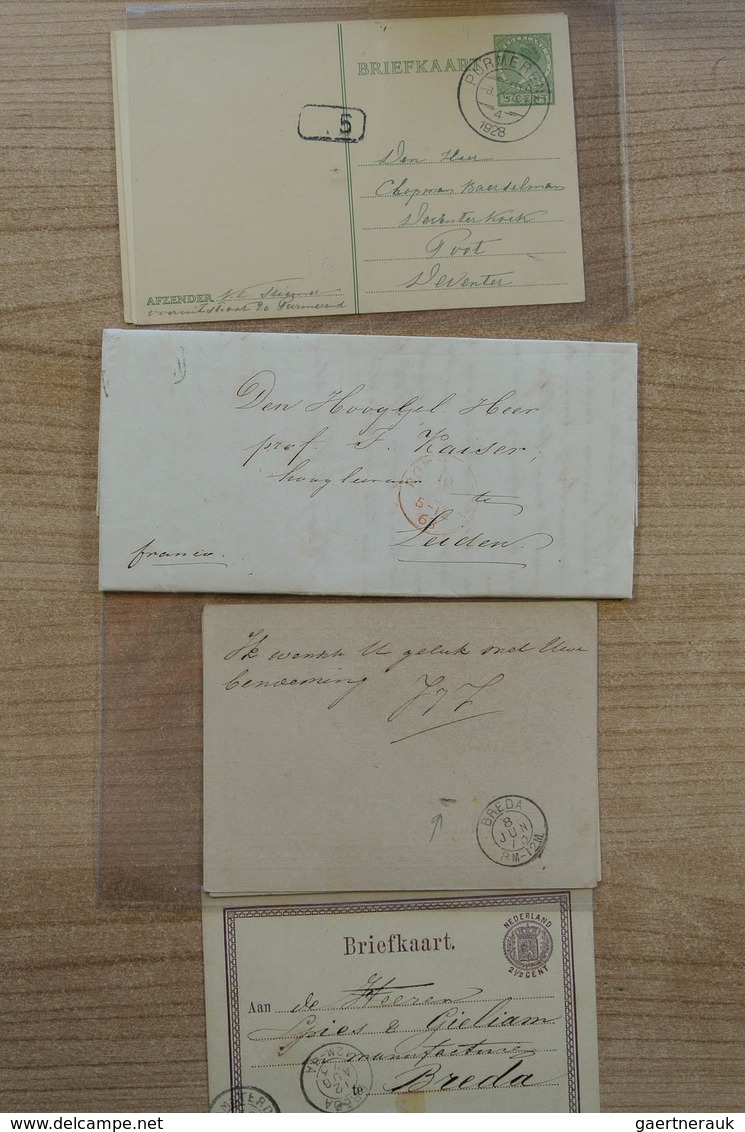 BRIEFKAART
PURMEREND
4
1928
5
Den Heer
Chopman Baerselman
Deventer Koek
Poot
Deventer
AFZENDER
Purmerend
Den HoogGel. Heer
prof. F. Kaiser,
hoogleeraar te
Leiden.
franco.
Ik wensch U geluk met Uwe
benoeming
BREDA
8
JUN
8M-12M
Briefkaart.
NEDERLAND
2½ CENT
Aan de Heeren
Spies & Gieliam
manufacture
te Breda
BREDA
12
AUG
gaertnerauk